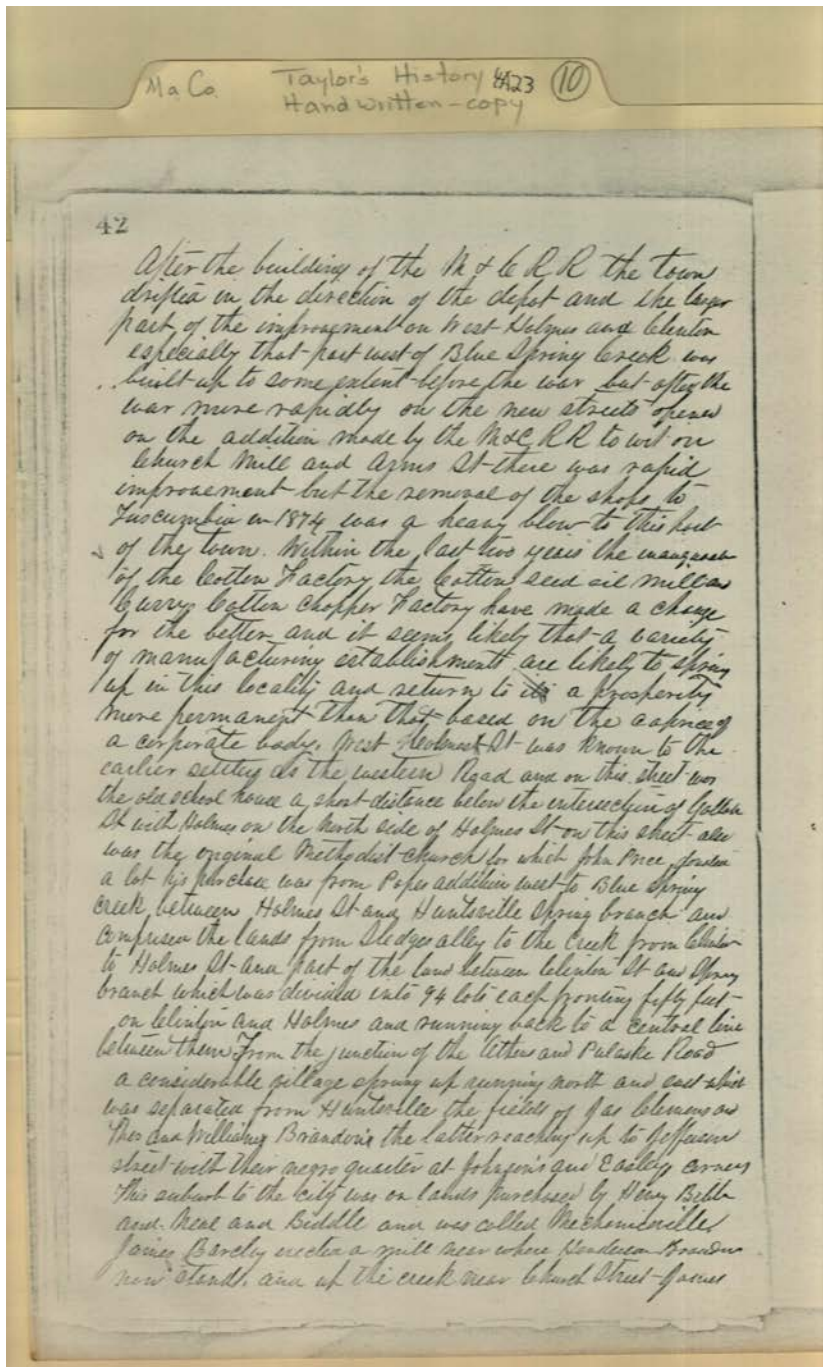 Ma. Co. Taylor's History 4A23 10
Handwritten-copy
42
After the building of the M & C R R the town
drifted in the direction of the depot and the larger
part of the improvement on West Holmes and Clinton
especially that part west of Blue Spring Creek was
built up to some extent before the war but after the
war more rapidly on the new streets opened
on the addition made by the M&C RR to wit on
Church Mill and Arms St there was rapid
improvement but the removal of the shops to
Tuscumbia in 1874 was a heavy blow to this part
of the town. Within the last two years the
of the Cotton Factory the Cotton seed oil mill and
Curry Cotton Chopper Factory have made a change
for the better and it seems likely that a variety
of manufacturing establishments are likely to spring
up in this locality and return to it a prosperity
more permanent than that based on the caprice of
a corporate body. West Holmes St was known to the
earlier settlers as the western Road and on this street was
the old school house a short distance below the intersection of Gallatin
St with Holmes on the North side of Holmes St on this street also
was the original Methodist church for which John Price
a lot his purchase was from Popes addition west to Blue Spring
creek between Holmes St and Huntsville Spring branch and
comprised the lands from Sledges alley to the Creek from Clinton
to Holmes St and part of the land between Clinton St and Spring
branch which was divided into 94 lots each fronting fifty feet
on Clinton and Holmes and running back to a central line
between them From the junction of the Athens and Pulaske Road
a considerable village sprung up running north and east which
was separated from Huntsville the fields of Jas Clemens and
Thos and William Brandon's the latter reaching up to Jefferson
street with their negro quarter at Johnson's and Easleys corners
This suburb to the city was on lands purchased by Henry Bibb
and Neal and Biddle and was called Mechanicsville
James Barclay erected a mill near where Henderson Brandon
now stands. and up the creek near Church Street James